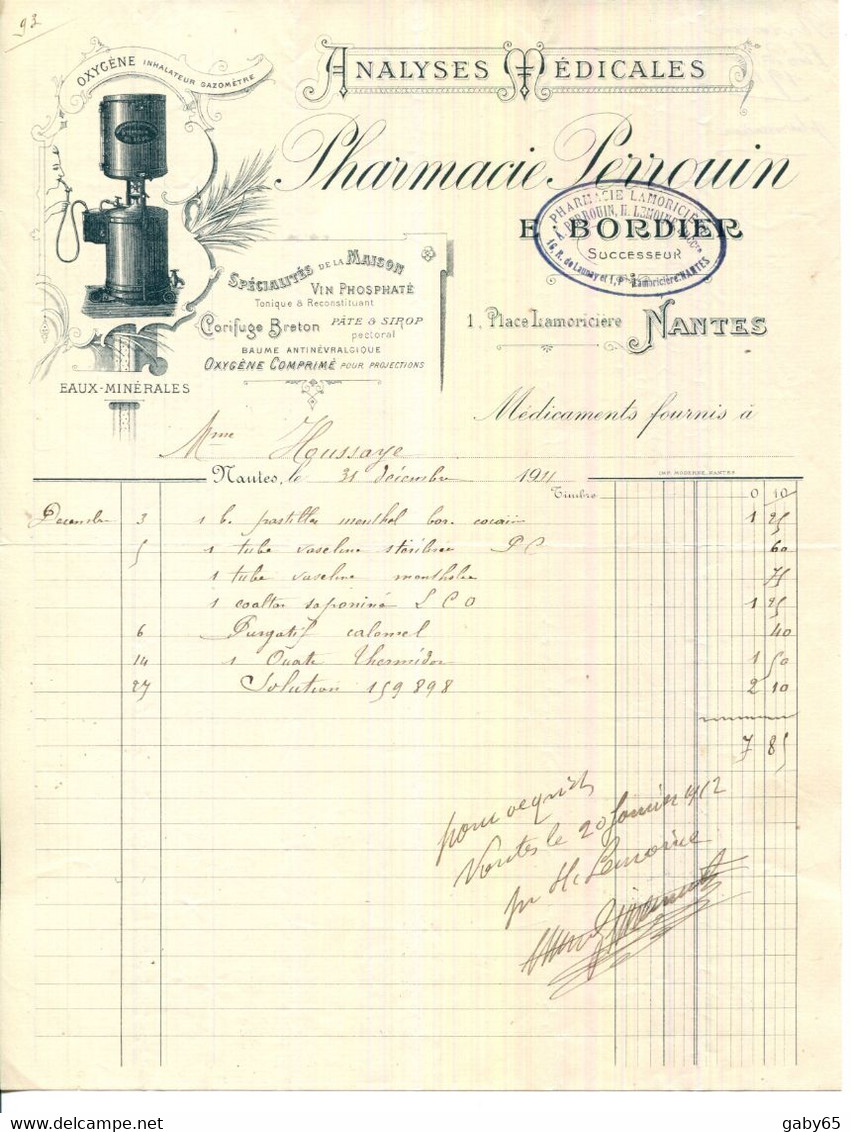 93
OXYGÈNE INHALATEUR GAZOMÈTRE
ANALYSES MÉDICALES
Pharmacie Perrouin
E. BORDIER
SUCCESSEUR
PHARMACIE LAMORICIÈRE
A. PERROUIN, H. LEMOINE
16, R. de Launay et 1, Pce Lamoricière. NANTES
SPÉCIALITÉS DE LA MAISON
VIN PHOSPHATÉ
Tonique & Reconstituant
Corifuge Breton PÂTE & SIROP
pectoral
BAUME ANTINÉVRALGIQUE
OXYGÈNE COMPRIMÉ POUR PROJECTIONS
1, Place Lamoricière NANTES
EAUX-MINÉRALES
Médicaments fournis à
Mme Houssaye
Nantes, le 31 décembre 1911
IMP. MODERNE, NANTES
Timbre 0 10
Décembre 3 1 b. pastilles menthol bor. cocaïn 1 25
5 1 tube vaseline stérilisée P C 60
1 tube vaseline mentholée 75
1 coaltar saponiné L C O 1 25
6 Purgatif calomel 40
14 1 Ouate Thermidor 1 50
27 Solution 159898 2 10
7 85
pour acquit
Nantes le 20 Janvier 1912
pr H. Lemoine
gaby65